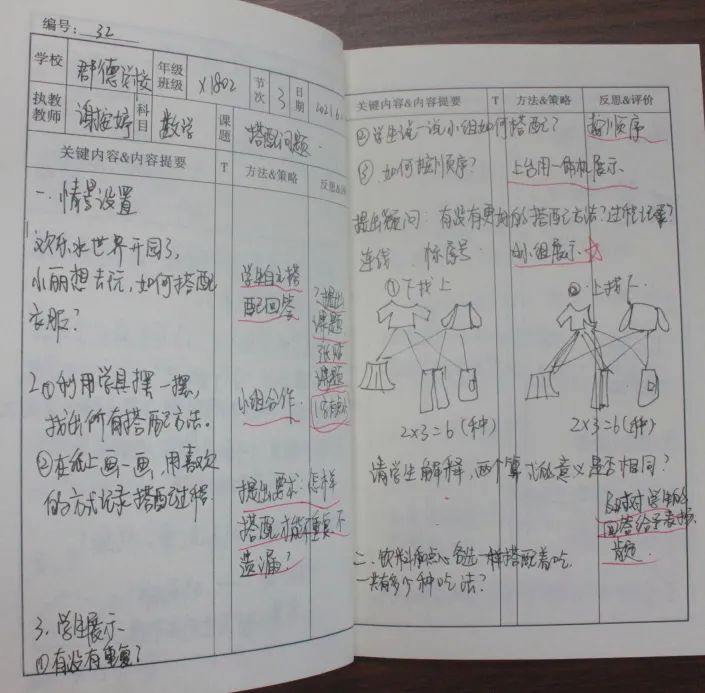 编号: 32
学校 郡德学校 年级班级 X1802 节次 3 日期 2021.6.
执教教师 谢 婷 科目 数学 课题 搭配问题.
关键内容&内容提要 T 方法&策略 反思&评
一.情景设置
欢乐水世界开园了,
小丽想去玩,如何搭配
衣服?
学生自主搭
配回答
?提出
课题
张贴
课题
2.①利用学具摆一摆,
找出所有搭配方法。
小组合作.
②在纸上画一画,用喜欢
的方式记录搭配过程.
提出要求:怎样
搭配才能不重复不
遗漏?
3.学生展示
①有没有重复?
关键内容&内容提要 T 方法&策略 反思&评价
②学生说一说小组如何搭配?
按顺序
③.如何按顺序?
上台用一体机展示.
提出疑问:有没有更好的搭配方法?过程记录?
连线 标序号
小组展示.
①下找上
②上找下.
2×3=6(种)
2×3=6(种)
请学生解释,两个算式的意义是否相同?
及时对学生的
回答给予表扬.
肯定.
二.饮料和点心各选一样搭配着吃.
一共有多少种吃法?